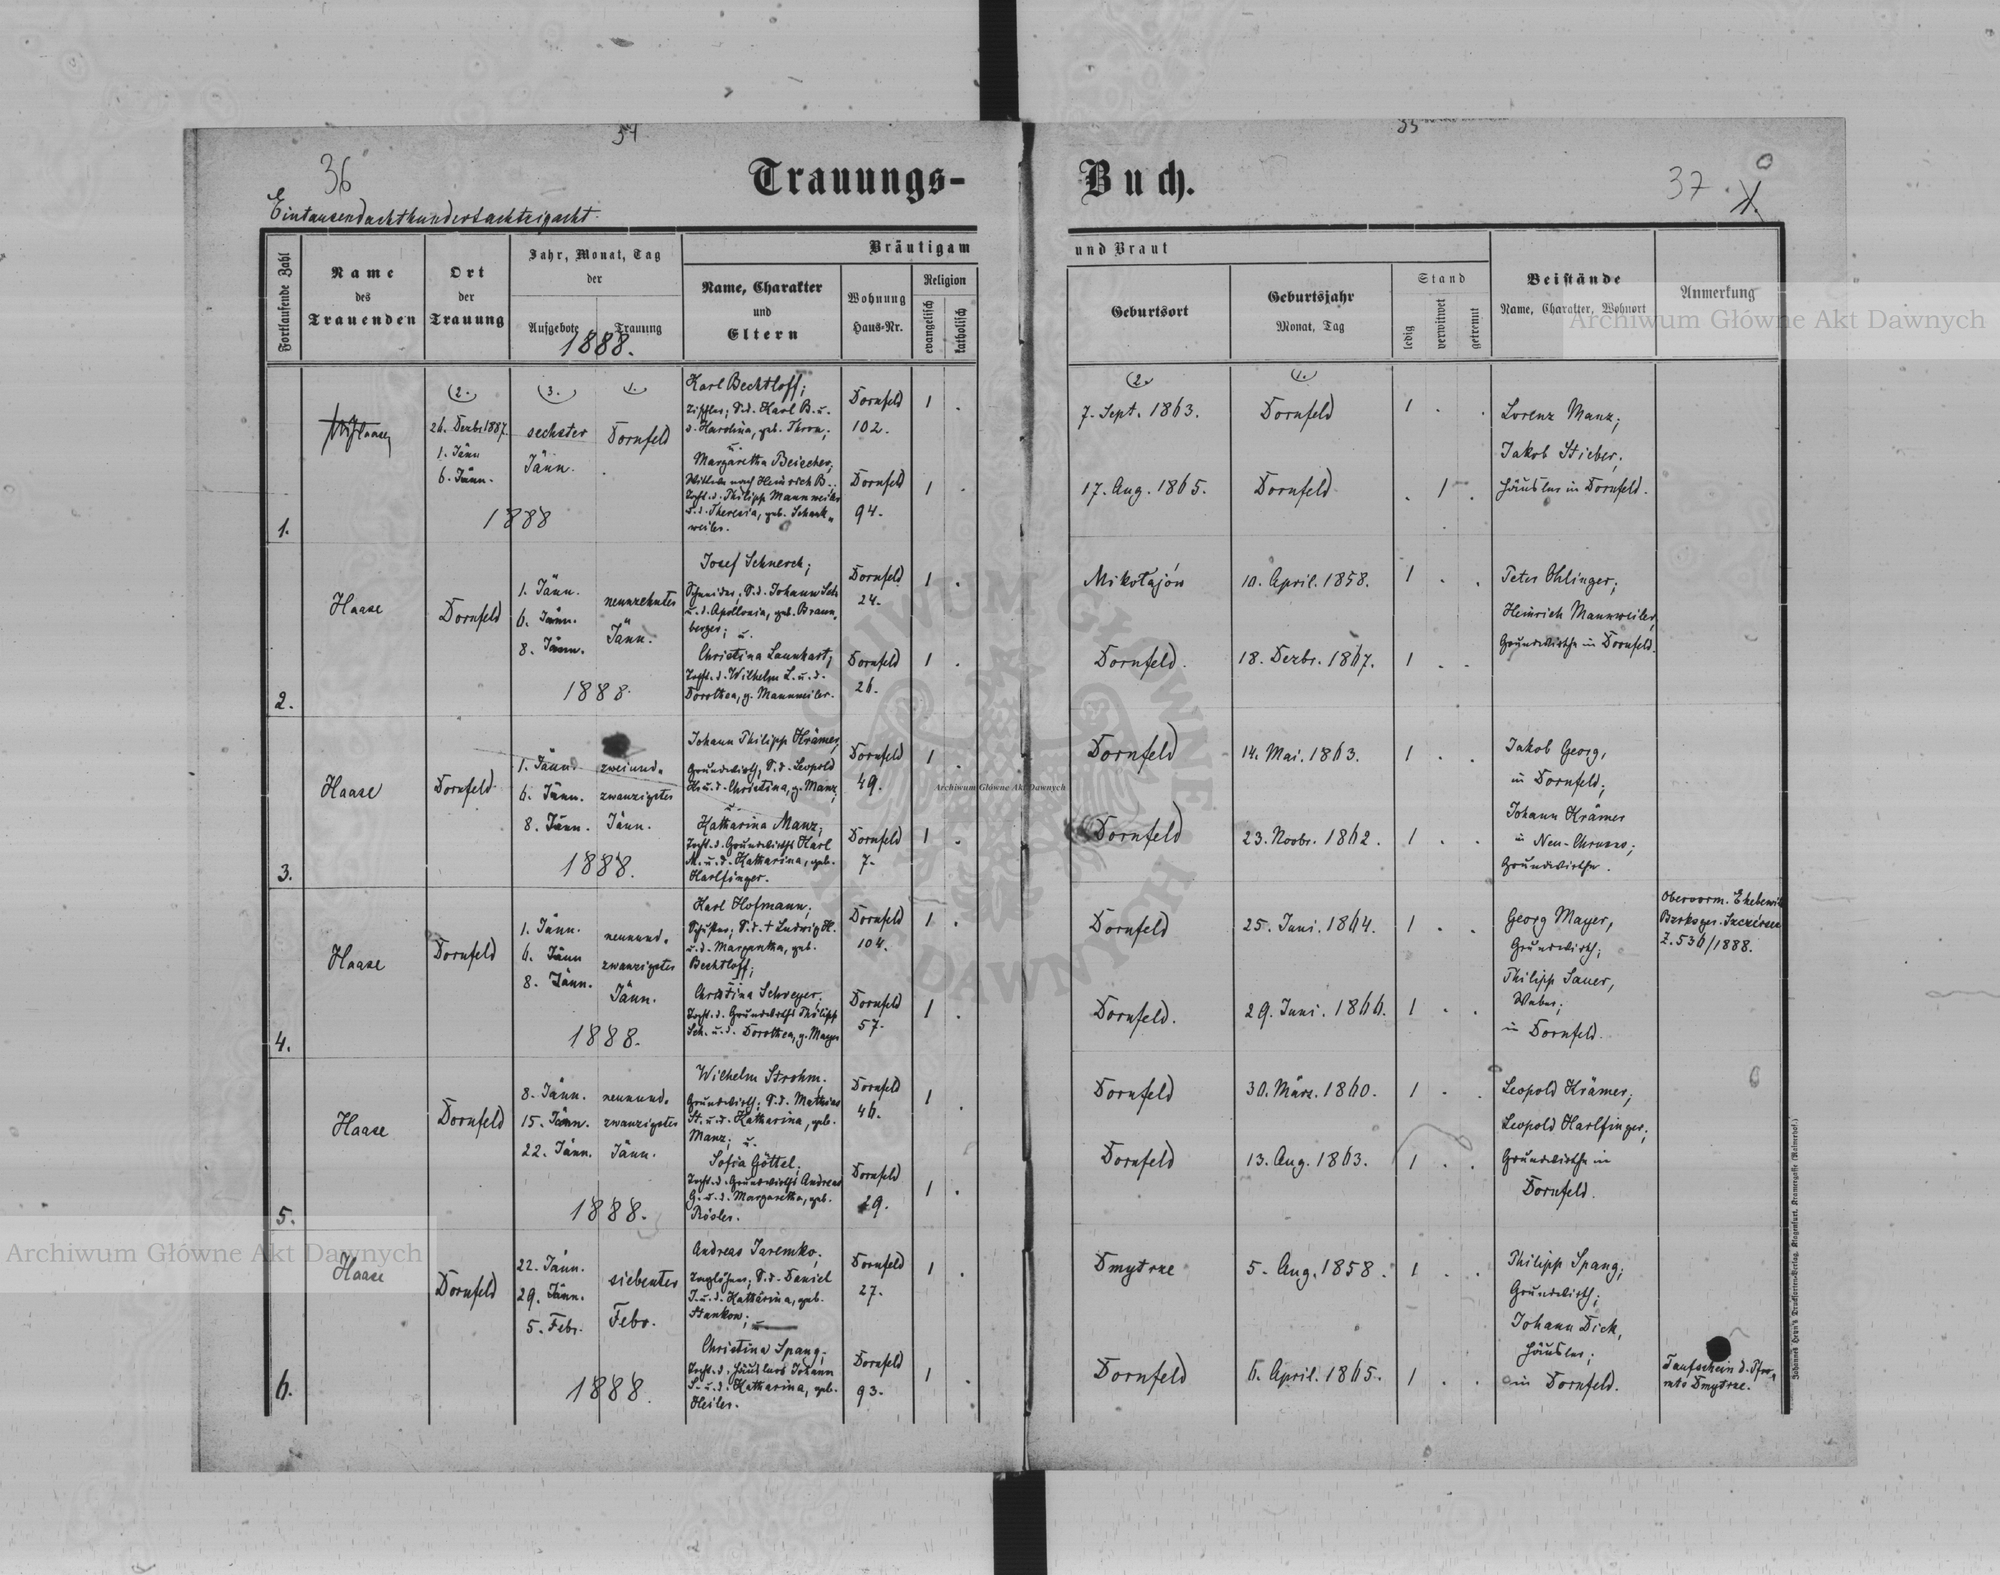 54
55
36
37.
X.
Trauungs-
Buch.
Eintausendachthundertachtzigacht.
Fortlaufende Zahl
Name
des
Trauenden
Ort
der
Trauung
Jahr, Monat, Tag
der
Aufgebote
Trauung
1888.
Bräutigam
Name, Charakter
und
Eltern
Wohnung
Haus-Nr.
Religion
evangelisch
katholisch
und Braut
Geburtsort
Geburtsjahr
Monat, Tag
Stand
ledig
verwitwet
getrennt
Beistände
Name, Charakter, Wohnort
Anmerkung
1.
Haase
2.
26. Dezbr. 1887.
1. Jänn
6. Jänn.
3.
sechster
Jänn.
1.
Dornfeld
1888
Karl Bechtloff;
S.d. Karl B. u.
d. Karolina, geb. Thron;
u.
Margaretha Beischer;
Witwe nach Heinrich B.;
Tocht. d. Philipp Mannweiler
u. d. Theresia, geb. Schank-
weiler.
Dornfeld
102.
Dornfeld
94.
1 .
1 .
2.
7. Sept. 1863.
17. Aug. 1865.
1.
Dornfeld
Dornfeld
1 . .
. 1 .
Lorenz Manz;
Jakob Stieber;
Häusler in Dornfeld.
2.
Haase
Dornfeld
1. Jänn.
6. Jänn.
8. Jänn.
neunzehnter
Jänn.
1888.
Josef Schnerch;
Schneider; S.d. Johann Sch.
u. d. Apollonia, geb. Braun-
berger; u.
Christina Launhart;
Tocht. d. Wilhelm L. u. d.
Dorothea, g. Mannweiler.
Dornfeld
24.
Dornfeld
26.
1 .
1 .
Mikołajów
Dornfeld.
10. April. 1858.
18. Dezbr. 1867.
1 . .
1 . .
Peter Ohlinger;
Heinrich Mannweiler,
Grundwirthe in Dornfeld.
3.
Haase
Dornfeld
1. Jänn
6. Jänn.
8. Jänn.
zweiund-
zwanzigster
Jänn.
1888.
Johann Philipp Krämer,
Grundwirth; S.d. Leopold
Kr. u. d. Christina, g. Manz;
u.
Katharina Manz;
Tocht. d. Grundwirths Karl
M. u. d. Katharina, geb.
Harlfinger.
Dornfeld
49.
Dornfeld
7.
1 .
1 .
Dornfeld
Dornfeld
14. Mai. 1863.
23. Novbr. 1862.
1 . .
1 . .
Jakob Georg,
in Dornfeld;
Johann Krämer
in Neu-Chrusno;
Grundwirthe.
4.
Haase
Dornfeld
1. Jänn.
6. Jänn
8. Jänn.
neunund-
zwanzigster
Jänn.
1888.
Karl Hofmann;
S.d. † Ludwig H.
u. d. Margaretha, geb.
Bechtloff;
Christina Schreyer;
Tocht. d. Grundwirths Philipp
Sch. u. d. Dorothea, g. Mayer
Dornfeld
104.
Dornfeld
57.
1 .
1 .
Dornfeld
Dornfeld.
25. Juni. 1864.
29. Juni. 1866.
1 . .
1 . .
Georg Mayer,
Grundwirth;
Philipp Sauer,
Weber;
in Dornfeld.
Obervorm. Ehebewil
Bzrksger. Szczérzec
Z. 536/1888.
5.
Haase
Dornfeld
8. Jänn.
15. Jänn.
22. Jänn.
neunund-
zwanzigster
Jänn.
1888.
Wilhelm Strohm.
Grundwirth; S.d. Mathias
St. u. d. Katharina, geb.
Manz; u.
Sofia Göttel;
Tocht. d. Grundwirths Andreas
G. u. d. Margaretha, geb.
Rösler.
Dornfeld
46.
Dornfeld
29.
1 .
1 .
Dornfeld
Dornfeld
30. März. 1860.
13. Aug. 1863.
1 . .
1 . .
Leopold Krämer;
Leopold Harlfinger;
Grundwirthe in
Dornfeld.
6.
Haase
Dornfeld
22. Jänn.
29. Jänn.
5. Febr.
siebenter
Febr.
1888.
Andreas Jaremko;
Taglöhner; S.d. Daniel
J. u. d. Katharina, geb.
Stankow; u.
Christina Spang;
Tocht. d. Häuslers Johann
S. u. d. Katharina, geb.
Heiler.
Dornfeld
27.
Dornfeld
93.
1 .
1 .
Dmytrze
Dornfeld
5. Aug. 1858.
6. April. 1865.
1 . .
1 . .
Philipp Spang;
Grundwirth;
Johann Dick,
Häusler;
in Dornfeld.
Taufschein d. Pfar-
amts Dmytrze.
Archiwum Główne Akt Dawnych
Archiwum Główne Akt Dawnych
Archiwum Główne Akt Dawnych
ARCHIWUM GŁÓWNE AKT DAWNYCH